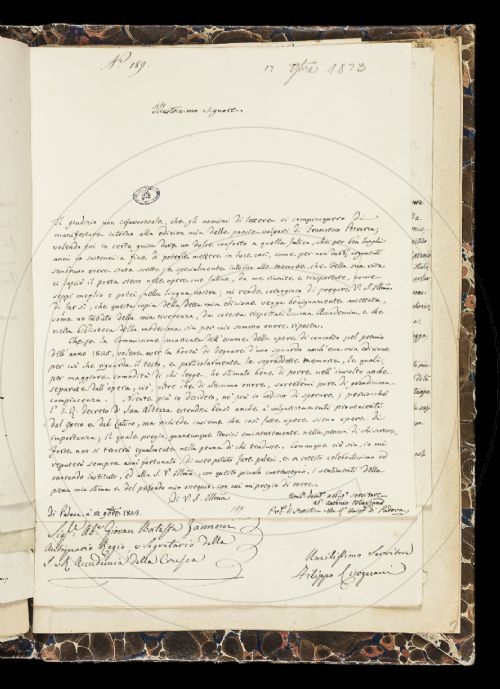 N.° 189
17 1823
Illustrissimo Signore
Il giudizio non isfavorevole, che gli uomini di lettere si compiacquero di
manifestare intorno alla edizion mia delle poesie volgari di Francesco Petrarca;
volendo fui in certa guisa dare un dolce conforto a quella fatica, che per ben lunghi
anni ho sostenuta a fine di poterle mettere in luce così, come per non dubbj argomenti
sembrano avere state scritte, specialmente intorno alle memorie, che della sua vita
ci lasciò il poeta stesso nelle opere sue latine, da me riunite e trasportate, come
seppi meglio e potei, nella lingua nostra; mi rende coraggioso di pregare V. S. Illma
di far sì, che questa copia della detta mia edizione venga benignamente accettata,
come un tributo della mia riverenza, da cotesta rispettabilissima Accademia, e che
nella biblioteca della medesima sia per mio sommo onore, riposta.
Che se la Commissione incaricata dell'esame delle opere di concorso pel premio
dell'anno 1825, volesse aver la bontà di degnare d'uno sguardo anch'essa mia edizione
per ciò che riguarda il testo, e particolarmente le sopraddette memorie, le quali,
per maggiore comodità di chi legge, ho stimato bene di porre nell'involto anche
separate dall'opera, ciò, oltre che di altissimo onore, sarebbemi pure di grandissima
compiacenza. Niente più io desidero, nè più io ardisco di sperare; perciocchè
l'I. R. Decreto di Sua Altezza estendesi bensì anche a' volgarizzamenti provenienti
dal greco e dal latino, ma richiede insieme che così fatte opere sieno opere di
importanza; il quale pregio, quantunque trovisi eminentemente nella penna di chi scrisse,
forse non si troverà egualmente nella penna di chi tradusse. Comunque ciò sia, io mi
reputerò sempre assai fortunato, di aver potuto fare palesi, e a cotesto celebratissimo ed
onorando instituto, ed alla S. V. Illma, con questo piccolo contrassegno, i sentimenti della
piena mia stima e del profondo mio ossequio, con cui mi pregio di essere
Di V. S. Illma
Umil.mo dev.mo obblig.mo servitore
ab. Antonio Marsand
Prof. di Statistica nella R. Univ. di Padova
Di Padova, a' 1823.
189
Sig.r Ab.e Giovan Batista Zannoni
Antiquario Regio, e Segretario della
I. e R. Accademia della Crusca
Umilissimo Servitore
Filippo Cicognani